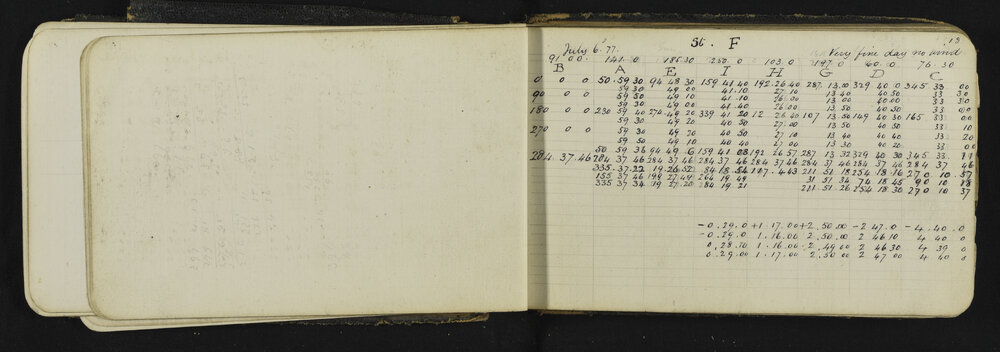 15
St. F
July 6. 77. Very fine day no wind
91 00. 141. 0 185 30 250. 0 103. 0 197. 0 60. 0 76. 30
B A E I H G D C
0 0 0 50. 59 30 94 48 30 159 41 40 192. 26 40 287. 13. 00 329 40 0 345 33 00
59 30 49 00 41. 10 27. 10 13 40 40 50 33 30
90 0 0 59 50 49 10 41. 10 26. 00 13 00 40 00 33 30
59 30 49 00 41. 40 26 00 13 50 40 50 33 00
180 0 0 230 59 40 274 49 20 339 41 20 12 26 40 107 13 50 149 40 30 165 33 00
59 30 49 20 40 50 27. 00 13 50 40 50 33 10
270 0 0 59 30 49 20 40 50 27 10 13 40 40 40 33 20
59 50 49 10 40 40 27 00 13 30 40 20 33 00
50 59 36 94 49 6 159 41 03 192 26 57 287 13 32 329 40 30 345 33
284. 37. 46 284 37 46 284 37 46 284 37 46 284 37 46 284 37 46 284 37 46 284 37 46
335. 37. 22 19. 26 52 34 18 54 211 51. 18 254 18. 16 270 10. 57
155 37 46 199 27 49 264 19 49 31 51 34 74 18 45 90 10 88
335 37 34 19 27 20 284 19 21 211. 51. 26 254 18. 30 270 10 37
- 0. 29. 0 + 1. 17. 00 + 2. 50. 00 - 2 47. 0 - 4. 40. 0
- 0. 29. 0 1. 16. 00 2. 50. 00 2 46 10 4 40 0
0. 28. 30 1. 16. 00 2. 49 00 2 46 30 4 39 0
0. 29. 00 1. 17. 00 2. 50 00 2 47 00 4 40 0